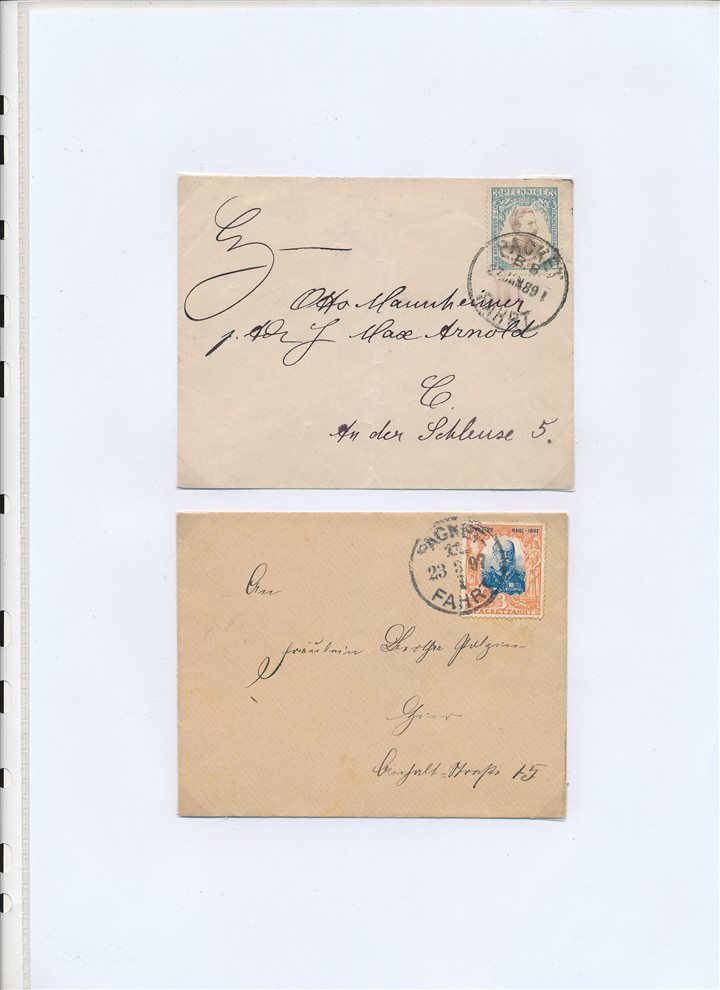 3 PFENNIGE 3
PACKET
B.S.
FAHRT
Otto Mannheimer
Max Arnold
C.
An der Schleuse 5.
PACKET
23 3 97
FAHRT
MÄRZ 1897
3
PACKETFAHRT
An
Fräulein Bertha
Hier
Anhalt-Straße 15